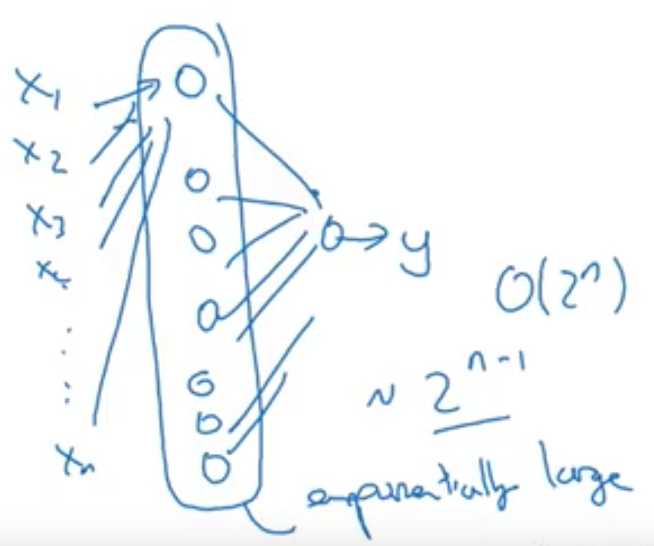 x1
x2
x3
x4
xn
y
O(2^n)
~ 2^{n-1}
exponentially large